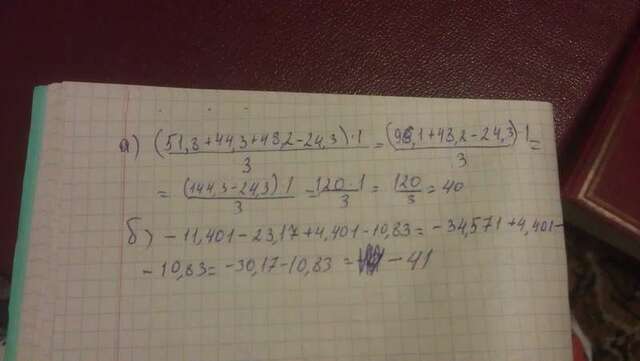 а) (51,8+44,3+48,2-24,3)·1/3 = (96,1+48,2-24,3)·1/3 =
= (144,3-24,3)·1/3 = 120·1/3 = 120/3 = 40
б) -11,401-23,17+4,401-10,83=-34,571+4,401-
-10,83=-30,17-10,83= -41